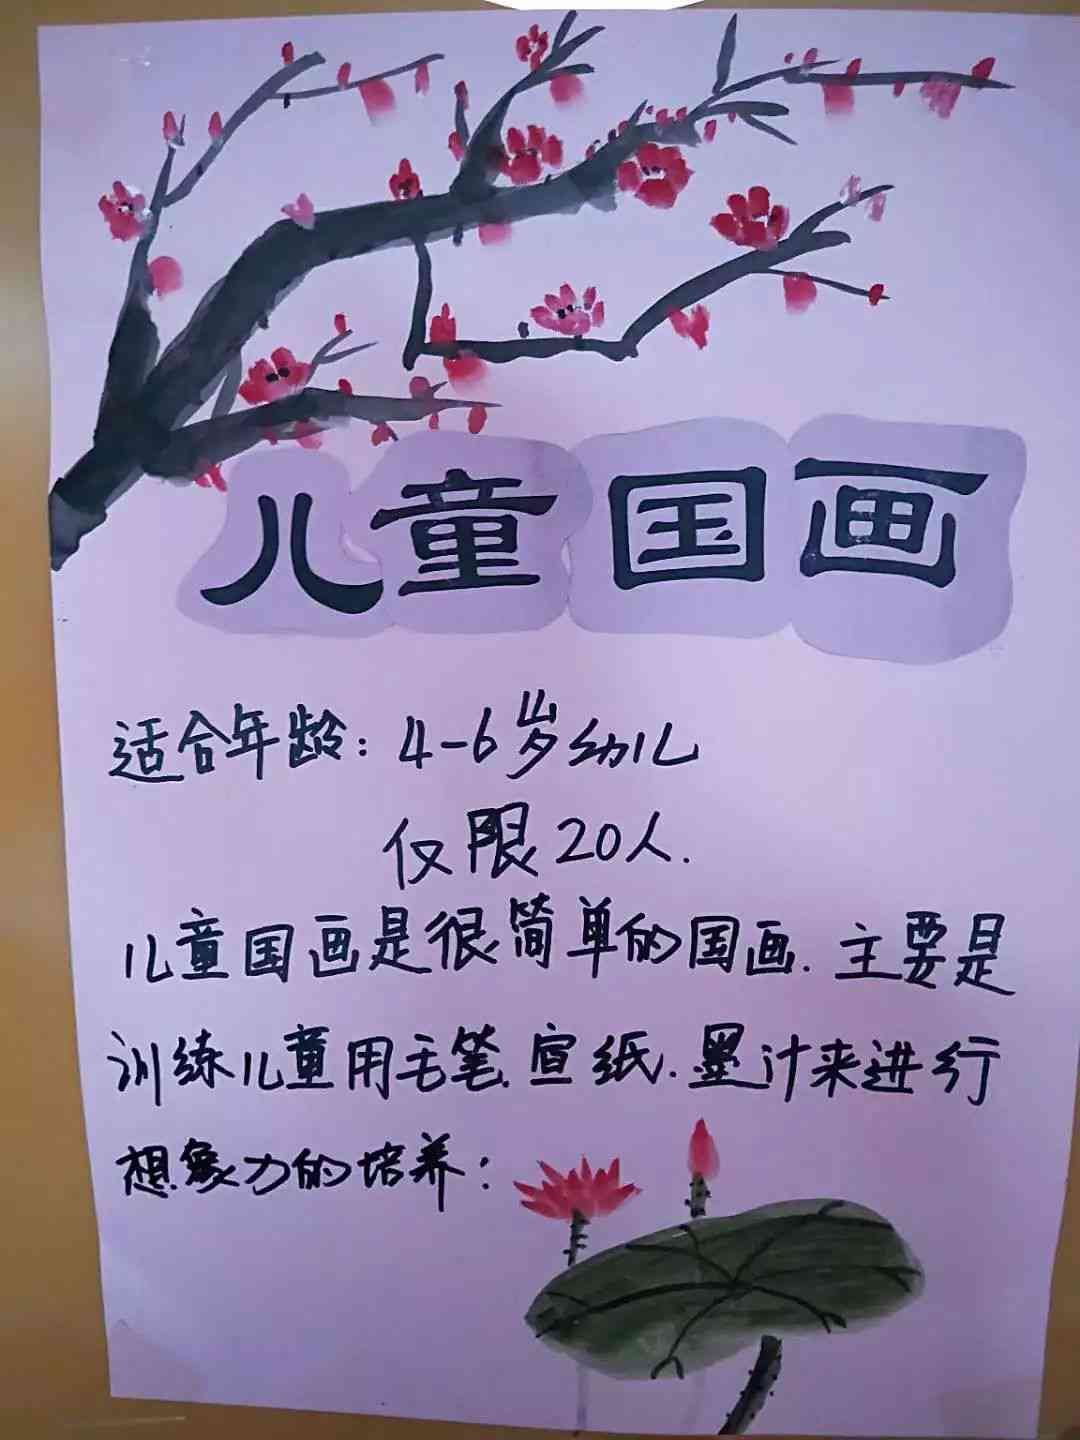 儿童国画
适合年龄：4-6岁幼儿
仅限20人.
儿童国画是很简单的国画.主要是
训练儿童用毛笔.宣纸.墨汁来进行
想象力的培养：